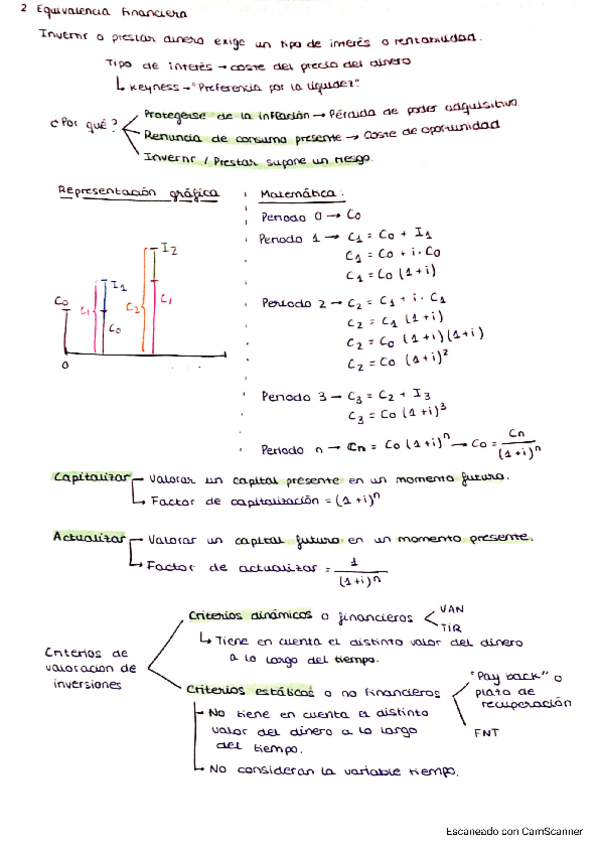 2 Equivalencia Financiera
Invertir o prestar dinero exige un tipo de interés o rentabilidad.
Tipo de interés → coste del precio del dinero
↳ Keyness → "Preferencia por la liquidez".
¿Por qué?
Protegerse de la inflación → Pérdida de poder adquisitivo
Renuncia de consumo presente → Coste de oportunidad
Invertir / Prestar supone un riesgo.
Representación gráfica
C0
C1
I1
C0
C2
I2
C1
0
Matemática:
Periodo 0 → C0
Periodo 1 → C1 = C0 + I1
C1 = C0 + i · C0
C1 = C0 (1+i)
Periodo 2 → C2 = C1 + i · C1
C2 = C1 (1+i)
C2 = C0 (1+i)(1+i)
C2 = C0 (1+i)²
Periodo 3 → C3 = C2 + I3
C3 = C0 (1+i)³
Periodo n → Cn = C0 (1+i)ⁿ → C0 = Cn / (1+i)ⁿ
Capitalizar → Valorar un capital presente en un momento futuro.
↳ Factor de capitalización = (1+i)ⁿ
Actualizar → Valorar un capital futuro en un momento presente.
↳ Factor de actualizar = 1 / (1+i)ⁿ
Criterios de
valoración de
inversiones
Criterios dinámicos o financieros
VAN
TIR
↳ Tiene en cuenta el distinto valor del dinero
a lo largo del tiempo.
Criterios estáticos o no financieros
"Pay back" o
plazo de
recuperación
FNT
→ No tiene en cuenta el distinto
valor del dinero a lo largo
del tiempo.
→ No consideran la variable tiempo.
Escaneado con CamScanner